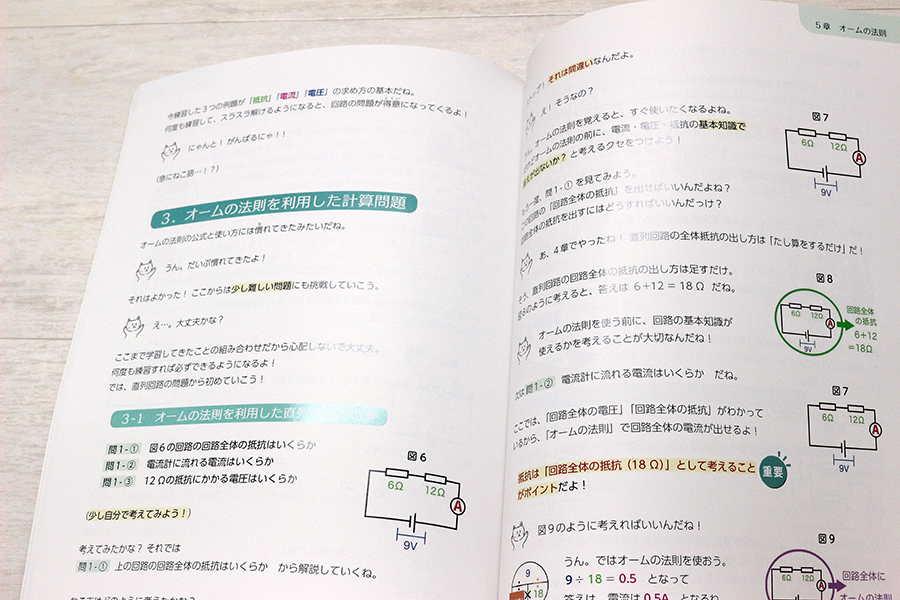 今練習した3つの例題が「抵抗」「電流」「電圧」の求め方の基本だね。
何度も練習して、スラスラ解けるようになると、回路の問題が得意になってくるよ！
にゃんと！ がんばるにゃ！！
(急にねこ語…！？)
3. オームの法則を利用した計算問題
オームの法則の公式と使い方には慣れてきたみたいだね。
うん。だいぶ慣れてきたよ！
それはよかった！ ここからは少し難しい問題にも挑戦していこう。
え…。大丈夫かな？
ここまで学習してきたことの組み合わせだから心配しないで大丈夫。
何度も練習すれば必ずできるようになるよ！
では、直列回路の問題から初めていこう！
3-1 オームの法則を利用した直
問1-① 図6の回路の回路全体の抵抗はいくらか
問1-② 電流計に流れる電流はいくらか
問1-③ 12Ωの抵抗にかかる電圧はいくらか
図6
6Ω 12Ω
A
9V
(少し自分で考えてみよう！)
考えてみたかな？ それでは
問1-① 上の回路の回路全体の抵抗はいくらか から解説していくね。
5章 オームの法則
それは間違いなんだよ。
え！ そうなの？
オームの法則を覚えると、すぐ使いたくなるよね。
オームの法則の前に、電流・電圧・抵抗の基本知識で
が出ないか？ と考えるクセをつけよう！
図7
6Ω 12Ω
A
9V
問1-① を見てみよう。
の「回路全体の抵抗」を出せばいいんだよね？
全体の抵抗を出すにはどうすればいいんだっけ？
あ、4章でやったね！ 直列回路の全体抵抗の出し方は「たし算をするだけ」だ！
直列回路の回路全体の抵抗の出し方は足すだけ。
のように考えると、答えは 6+12 = 18Ω だね。
図8
6Ω 12Ω
A
9V
回路全体
の抵抗
6+12
=18Ω
オームの法則を使う前に、回路の基本知識が
使えるかを考えることが大切なんだね！
問1-② 電流計に流れる電流はいくらか だね。
ここでは、「回路全体の電圧」「回路全体の抵抗」がわかって
いるから、「オームの法則」で回路全体の電流が出せるよ！
図7
6Ω 12Ω
A
9V
抵抗は「回路全体の抵抗（18Ω）」として考えること
がポイントだよ！
重要
図9のように考えればいいんだね！
図9
うん。ではオームの法則を使おう。
9 ÷ 18 = 0.5 となって
9
18
6Ω 12Ω
A
回路全体に